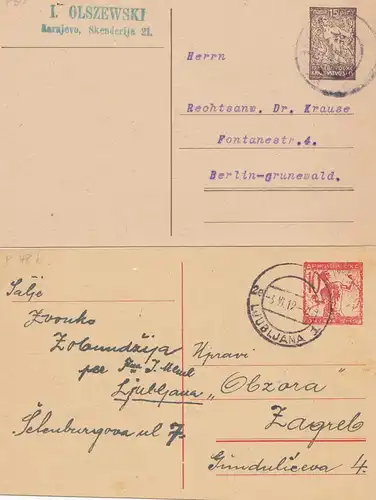 I. OLSZEWSKI
Sarajevo, Skenderija 21.
15
Herrn
Rechtsanw. Dr. Krause
Fontanestr. 4.
Berlin-Grunewald.
Šalje
Zvonko
Zobundžija
per
Ljubljana
Šelenburgova ul 7.
10
LJUBLJANA
Upravi
„Obzora"
Zagreb
Gundulićeva 4.